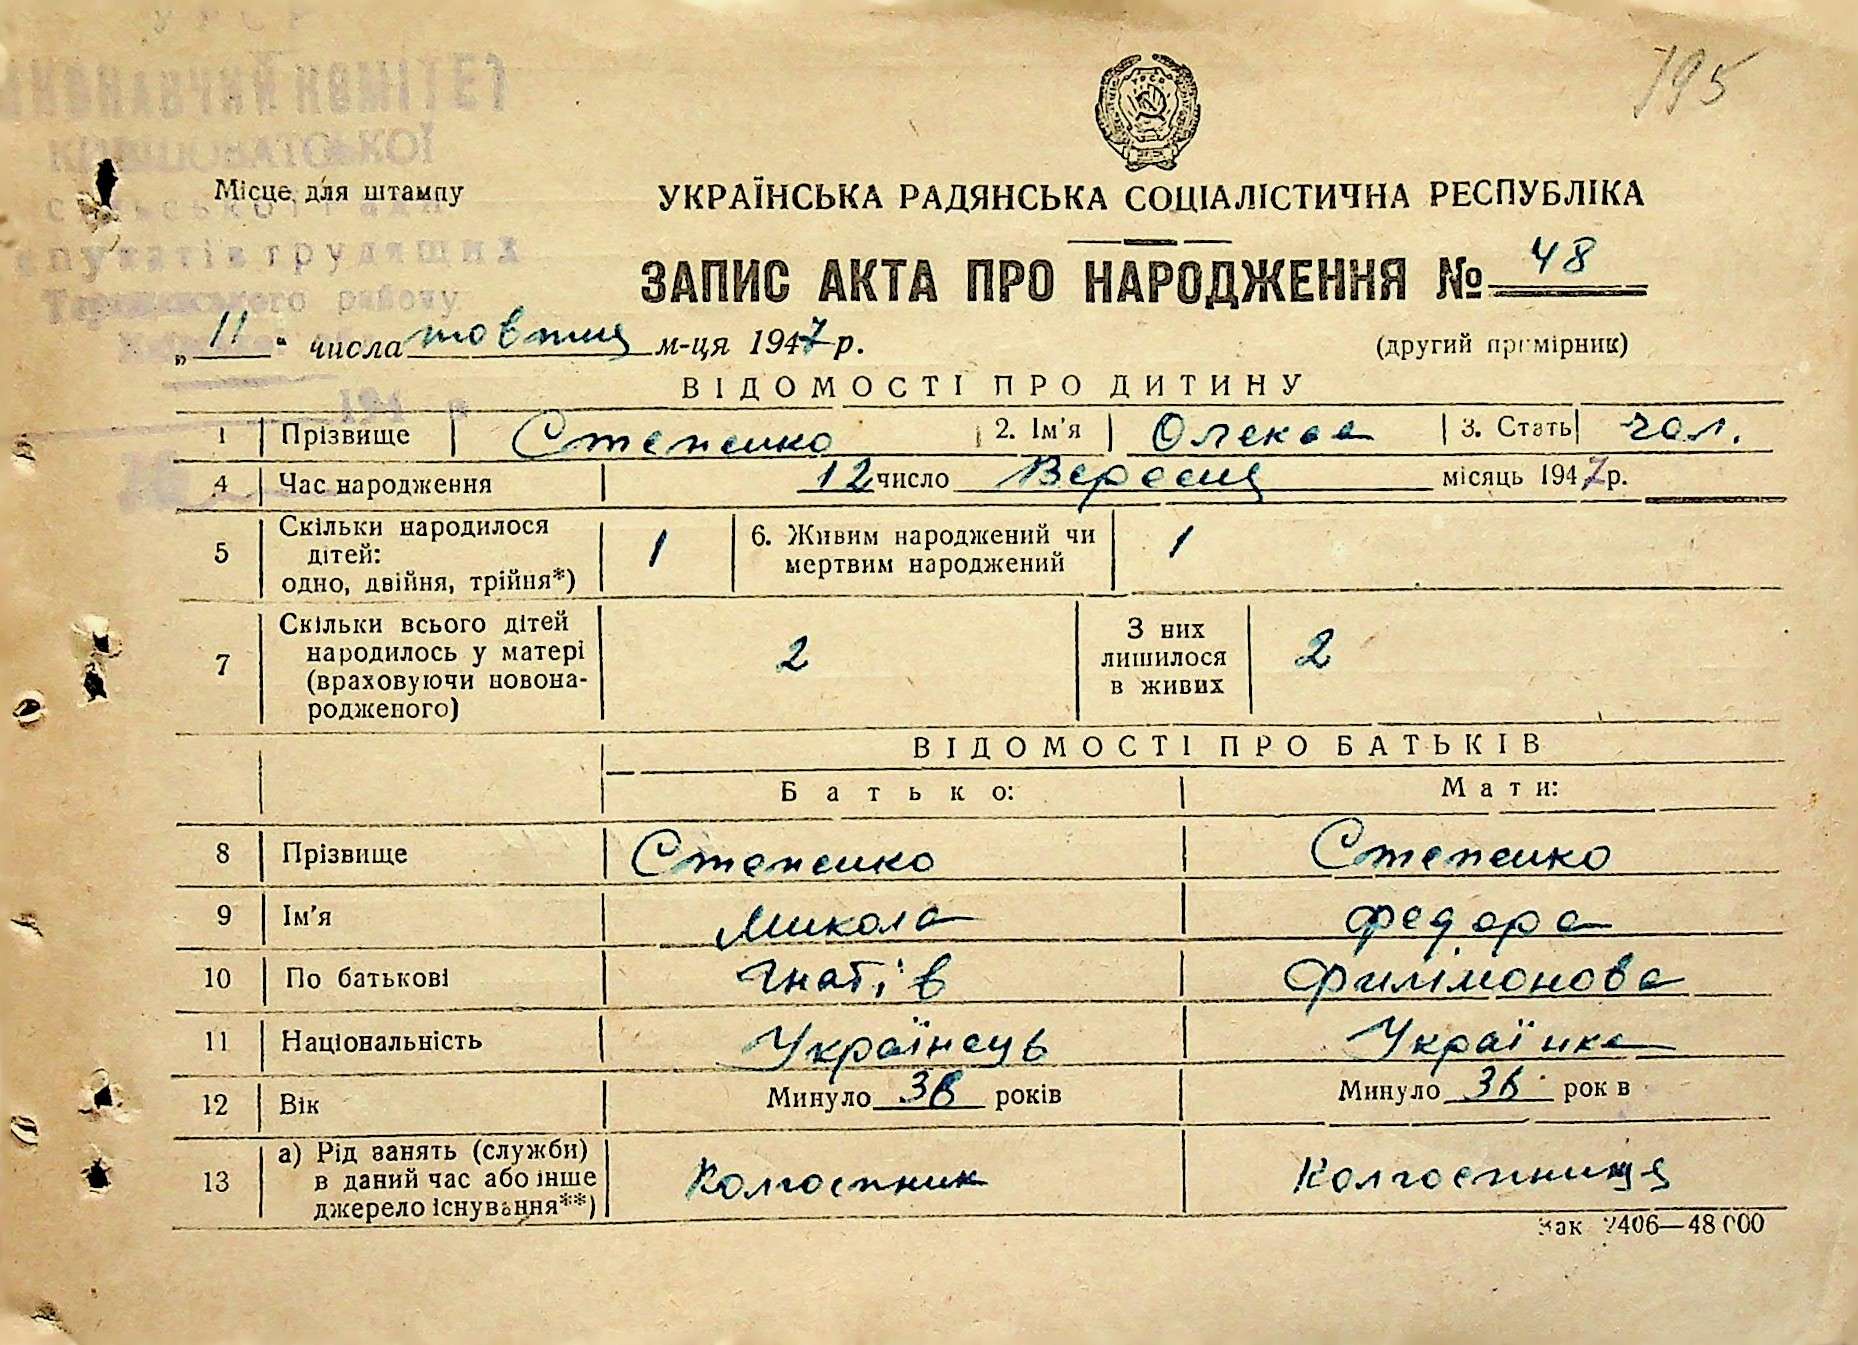 УРСР
ВИКОНАВЧИЙ КОМІТЕТ
795
Місце для штампу
УКРАЇНСЬКА РАДЯНСЬКА СОЦІАЛІСТИЧНА РЕСПУБЛІКА
сільської Ради
депутатів трудящих
ЗАПИС АКТА ПРО НАРОДЖЕННЯ № 48
району
„ 11 “ числа жовтня м-ця 1947 р.
(другий примірник)
ВІДОМОСТІ ПРО ДИТИНУ
1 Прізвище Степенко 2. Ім'я Олекса 3. Стать чол.
4 Час народження 12 число Вересня місяць 1947 р.
5 Скільки народилося дітей: одно, двійня, трійня*) 1 6. Живим народжений чи мертвим народжений 1
7 Скільки всього дітей народилось у матері (враховуючи новонародженого) 2 З них лишилося в живих 2
ВІДОМОСТІ ПРО БАТЬКІВ
Батько: Мати:
8 Прізвище Степенко Степенко
9 Ім'я Микола Федора
10 По батькові Гнатів Филімонова
11 Національність Українець Українка
12 Вік Минуло років Минуло рок в
13 а) Рід занять (служби) в даний час або інше джерело існування**) Колгоспник Колгоспниця
Зак 2406—48000